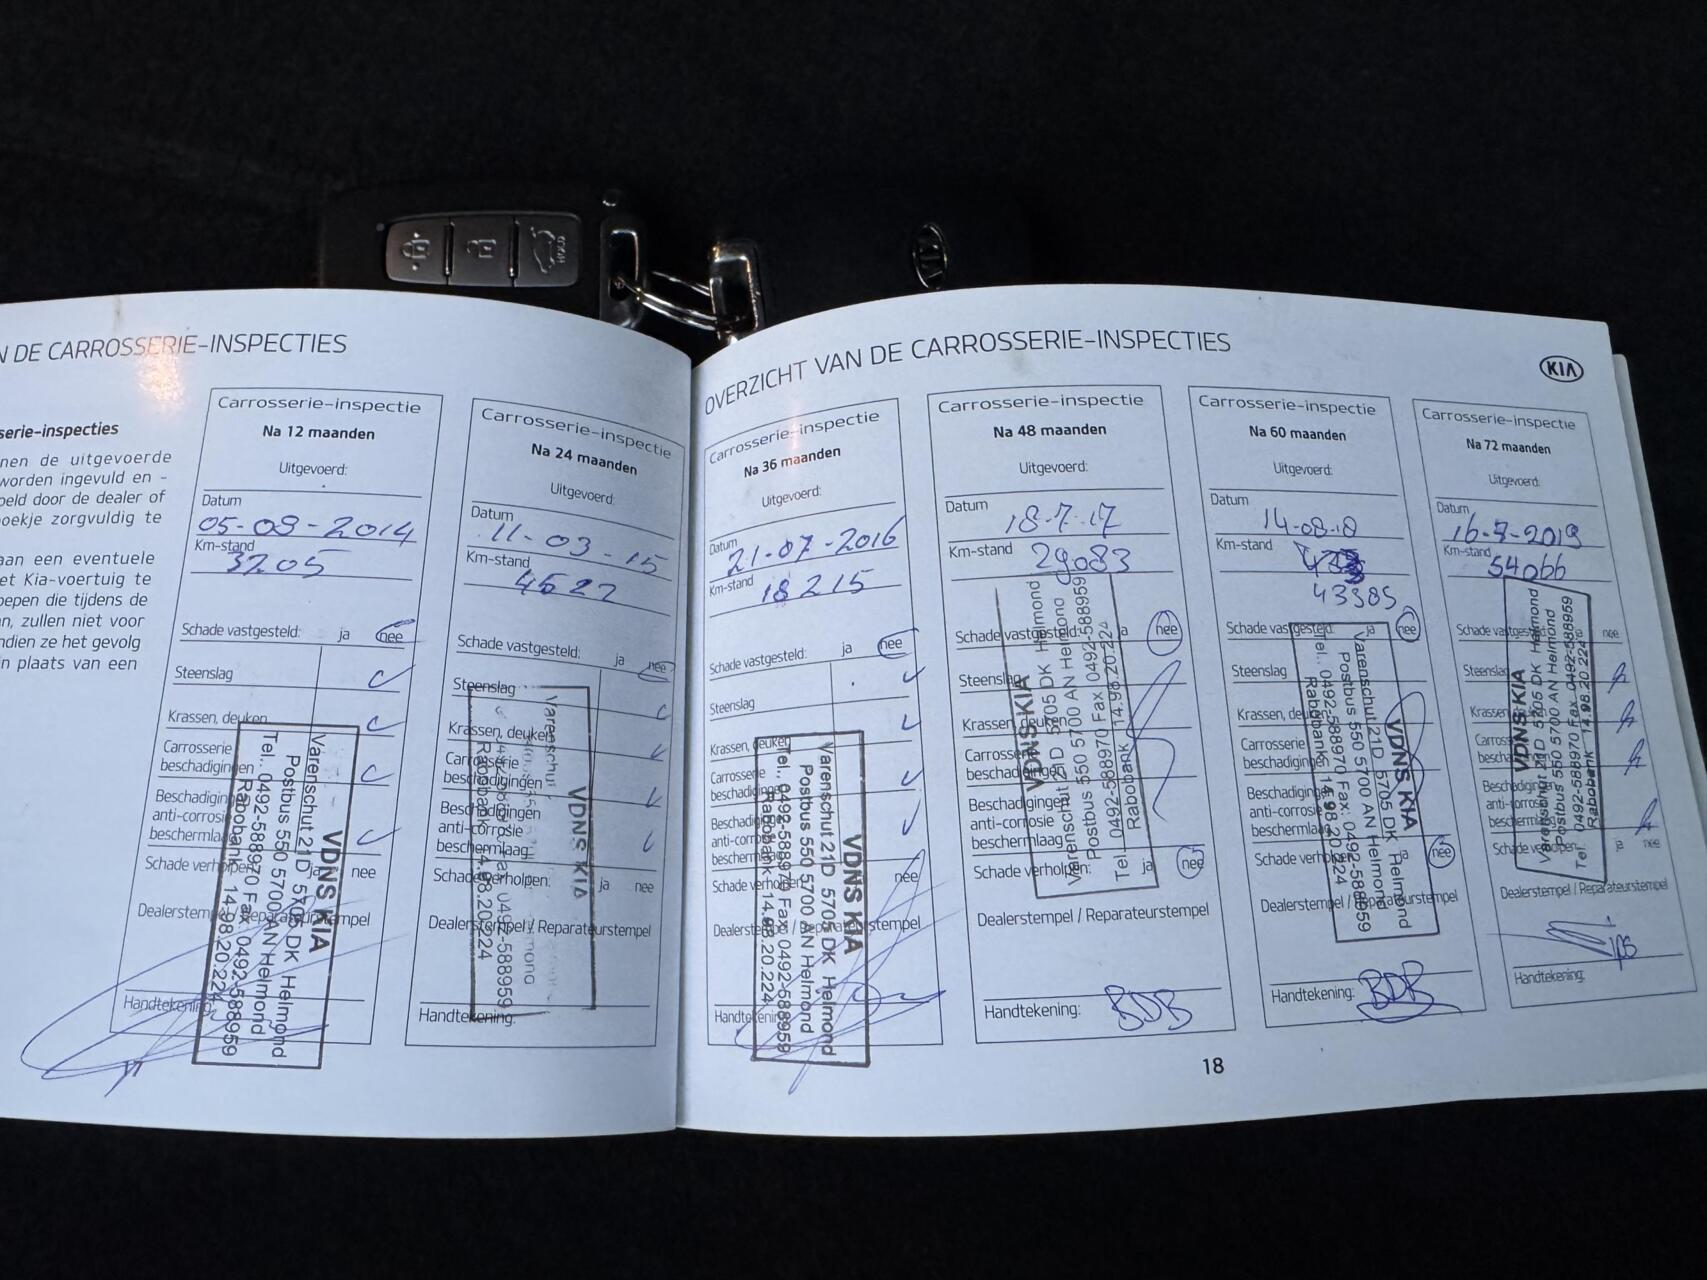 N DE CARROSSERIE-INSPECTIES
serie-inspecties
nen de uitgevoerde
worden ingevuld en -
peld door de dealer of
oekje zorgvuldig te
aan een eventuele
et Kia-voertuig te
oepen die tijdens de
n, zullen niet voor
ndien ze het gevolg
n plaats van een
Carrosserie-inspectie
Na 12 maanden
Uitgevoerd:
Datum
05-09-2014
Km-stand
3205
Schade vastgesteld: ja nee
Steenslag
Krassen, deuken
Carrosserie
beschadigingen
Beschadigingen
anti-corrosie
beschermlaag
Schade verholpen: ja nee
Dealerstempel / Reparateurstempel
VDNS KIA
Varenschut 21D 5705 DK Helmond
Postbus 550 5700 AN Helmond
Tel.. 0492-588970 Fax: 0492-588959
Rabobank 14.98.20.224
Handtekening:
17
Carrosserie-inspectie
Na 24 maanden
Uitgevoerd:
Datum
11-03-15
Km-stand
4622
Schade vastgesteld: ja nee
Steenslag
Krassen, deuken
Carrosserie
beschadigingen
Beschadigingen
anti-corrosie
beschermlaag
Schade verholpen: ja nee
Dealerstempel / Reparateurstempel
VDNS KIA
Varenschut
0492-588959
Rabobank 14.98.20.224
Handtekening:
OVERZICHT VAN DE CARROSSERIE-INSPECTIES
KIA
Carrosserie-inspectie
Na 36 maanden
Uitgevoerd:
Datum
21-07-2016
Km-stand
18215
Schade vastgesteld: ja nee
Steenslag
Krassen, deuken
Carrosserie
beschadigingen
Beschadigingen
anti-corrosie
beschermlaag
Schade verholpen: nee
Dealerstempel / Reparateurstempel
VDNS KIA
Varenschut 21D 5705 DK Helmond
Postbus 550 5700 AN Helmond
Tel.. 0492-588970 Fax: 0492-588959
Rabobank 14.98.20.224
Handtekening:
Carrosserie-inspectie
Na 48 maanden
Uitgevoerd:
Datum
18-7-17
Km-stand 29083
Schade vastgesteld: ja nee
Steenslag
Krassen, deuken
Carrosserie
beschadigingen
Beschadigingen
anti-corrosie
beschermlaag
Schade verholpen: ja nee
VDNS KIA
Varenschut 21D 5705 DK Helmond
Postbus 550 5700 AN Helmond
Tel.. 0492-588970 Fax 0492-588959
Rabobank 14.98.20.224
Dealerstempel / Reparateurstempel
Handtekening: BDB
Carrosserie-inspectie
Na 60 maanden
Uitgevoerd:
Datum
14-08-18
Km-stand
43385
Schade vastgesteld: ja nee
Steenslag
Krassen, deuken
Carrosserie
beschadigingen
Beschadigingen
anti-corrosie
beschermlaag
Schade verholpen: ja nee
VDNS KIA
Varenschut 21D 5705 DK Helmond
Postbus 550 5700 AN Helmond
Tel.. 0492-588970 Fax: 0492-588959
Rabobank 14.98.20.224
Dealerstempel / Reparateurstempel
Handtekening: BDB
Carrosserie-inspectie
Na 72 maanden
Uitgevoerd:
Datum
16-7-2019
Km-stand
54066
Schade vastgesteld: ja nee
Steenslag
Krassen, deuken
Carrosserie
beschadigingen
Beschadigingen
anti-corrosie
beschermlaag
Schade verholpen: ja nee
VDNS KIA
Varenschut 21D 5705 DK Helmond
Postbus 550 5700 AN Helmond
Tel. 0492-588970 Fax 0492-588959
Rabobank 14.98.20.224
Dealerstempel / Reparateurstempel
Handtekening:
18
KIA